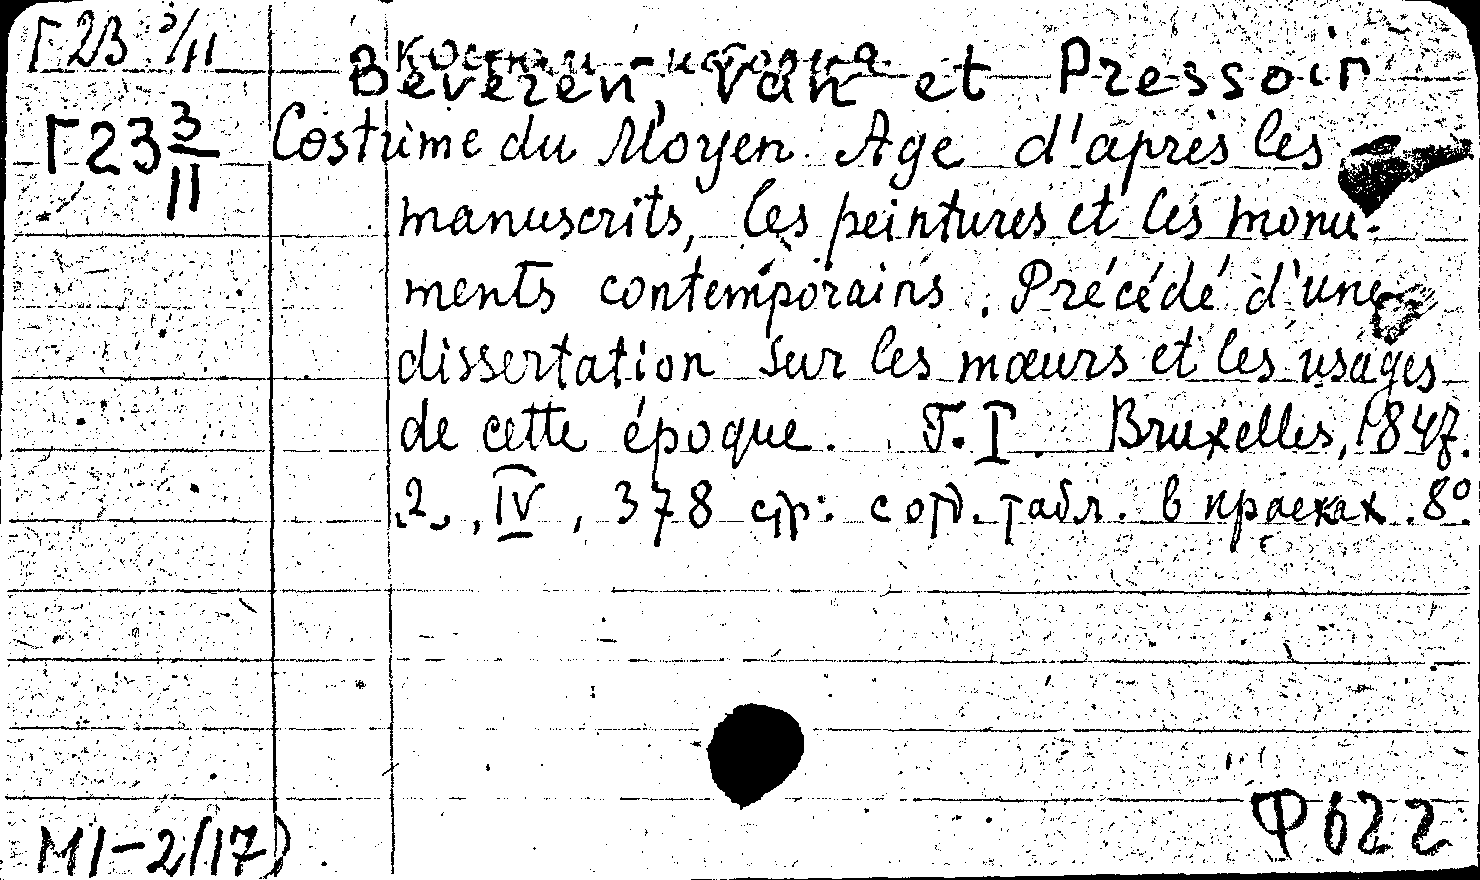 Г 23 3/II
Костюм - история.
Beveren, van et Pressoir
Г23 3/II
Costume du Moyen Age d'après les
manuscrits, les peintures et les monu-
ments contemporains. Précédé d'une
dissertation sur les mœurs et les usages
de cette époque. T. I. Bruxelles, 1847.
2, IV, 378 стр. с отд. табл. в красках. 8°.
М1-2(17)
Ф622